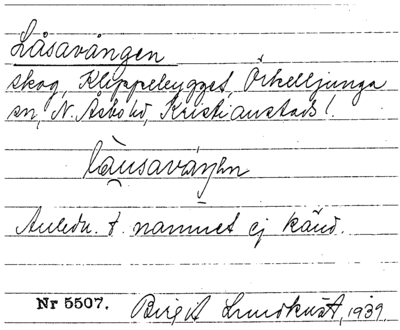 Låsavången
skog, Klippebygget, Örkelljunga
sn, N. Åsbo hd, Kristianstads l.
låusavåŋen
Anledn. t. namnet ej känd.
Nr 5507. Birgit Lundkvist, 1939.